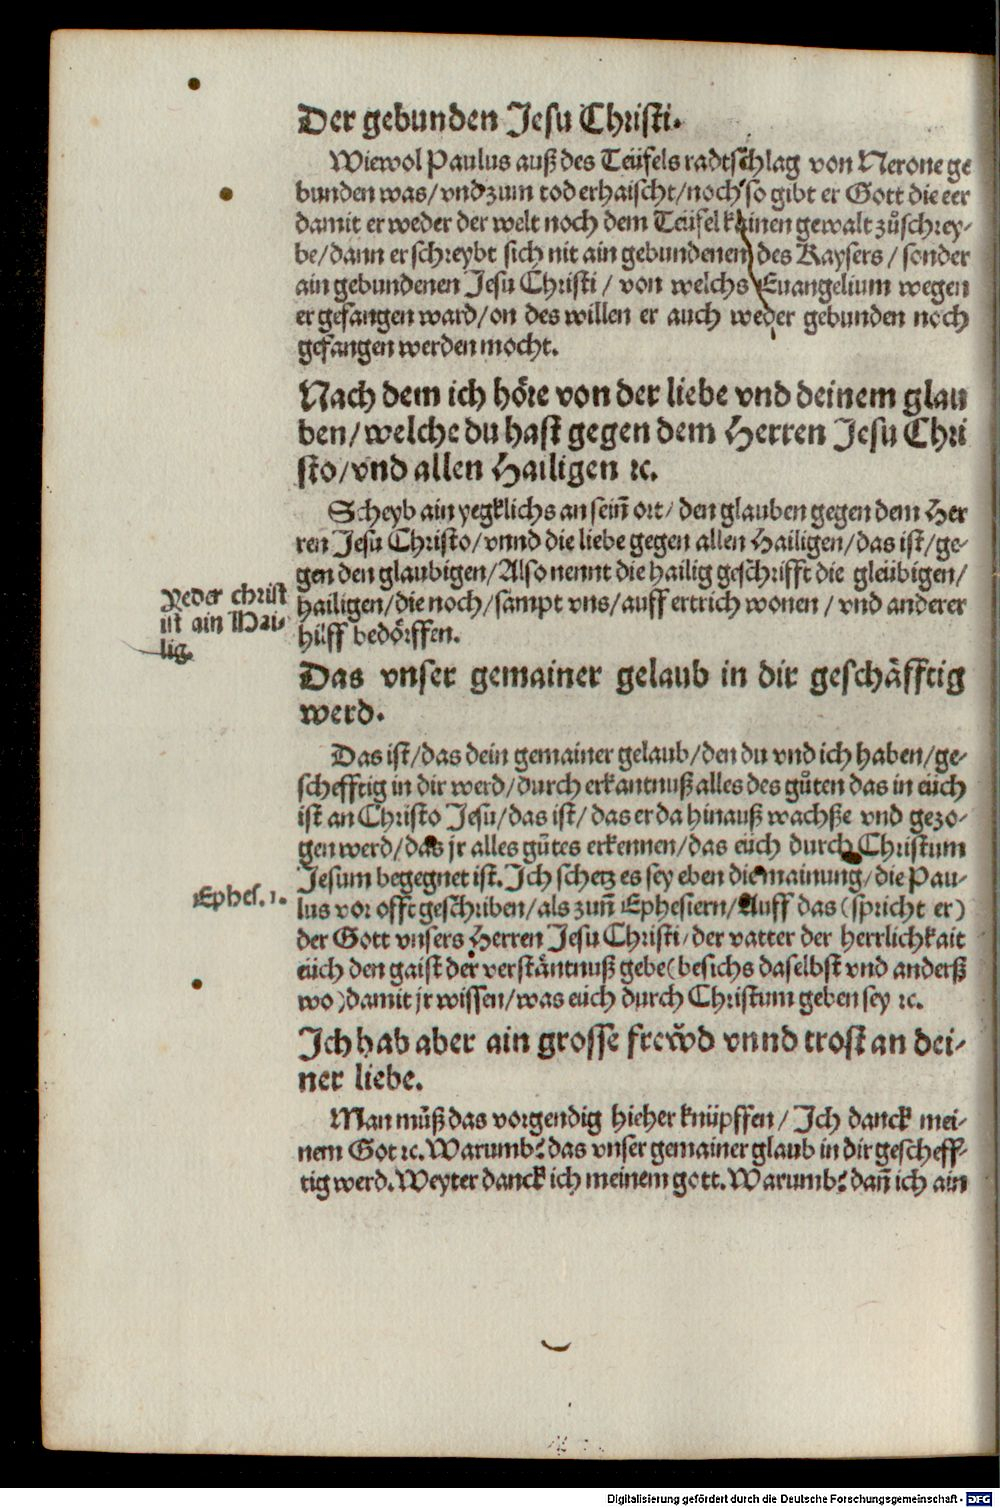 Der gebunden Jesu Christi.
Wiewol Paulus auß des Teüfels radtschlag von Nerone ge
bunden was/vnd zum tod erhaischt/noch so gibt er Gott die eer
damit er weder der welt noch dem Teüfel kainen gewalt zůschrey-
be/dann er schreybt sich nit ain gebundenen des Kaysers/sonder
ain gebundenen Jesu Christi/von welchs Euangelium wegen
er gefangen ward/on des willen er auch weder gebunden noch
gefangen werden mocht.
Nach dem ich höre von der liebe vnd deinem glau
ben/welche du hast gegen dem Herren Jesu Chri
sto/vnd allen Hailigen ꝛc.
Scheyb ain yegklichs an sein̄ ort/den glauben gegen dem Her
ren Jesu Christo/vnnd die liebe gegen allen Hailigen/das ist/ge-
gen den glaubigen/Also nennt die hailig geschrifft die gleübigen/
hailigen/die noch/sampt vns/auff ertrich wonen/vnd anderer
hilff bedörffen.
Yeder christ
ist ain Hai-
lig.
Das vnser gemainer gelaub in dir geschäfftig
werd.
Das ist/das dein gemainer gelaub/den du vnd ich haben/ge-
schefftig in dir werd/durch erkantnuß alles des gůten das in eüch
ist an Christo Jesu/das ist/das er da hinauß wachße vnd gezo-
gen werd/das jr alles gůtes erkennen/das eüch durch Christum
Jesum begegnet ist. Ich schetz es sey eben die mainung/die Pau-
lus vor offt geschriben/als zun̄ Ephesiern/Auff das (spricht er)
der Gott vnsers Herren Jesu Christi/der vatter der herrlichkait
eüch den gaist der verstäntnuß gebe(besichs daselbst vnd anderß
wo)damit jr wissen/was eüch durch Christum geben sey ꝛc.
Ephes. 1.
Ich hab aber ain grosse frewd vnnd trost an dei-
ner liebe.
Man můß das vorgendig hieher knüpffen/Ich danck mei-
nem Got ꝛc. Warumb? das vnser gemainer glaub in dir gescheff-
tig werd. Weyter danck ich meinem gott. Warumb? dan̄ ich ain
Digitalisierung gefördert durch die Deutsche Forschungsgemeinschaft - DFG